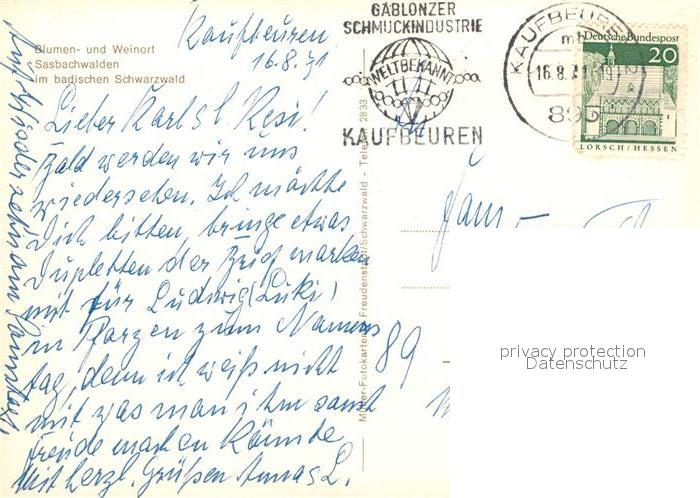 Kaufbeuren
16.8.71
Blumen- und Weinort
Sasbachwalden
im badischen Schwarzwald
Lieber Karl s l. Resi!
Bald werden wir uns
wiedersehen. Ich möchte
Dich bitten, bringe etwas
Dupletten der Briefmarken
mit für Ludwig (Luki)
in Pforzen zum Namens
tag, denn ich weiß nicht
mit was man ihm sonst
Freude machen könnte
Mit herzl. Grüßen Annas L.
Auf Wiedersehen am Samstag!
Müller-Fotokarten Freudenstadt/Schwarzwald - Telefon 2833
GABLONZER
SCHMUCKINDUSTRIE
WELTBEKANNT
KAUFBEUREN
KAUFBEUREN 2
16.8.71-19
895
Deutsche Bundespost
20
LORSCH/HESSEN
Fam
89
privacy protection
Datenschutz